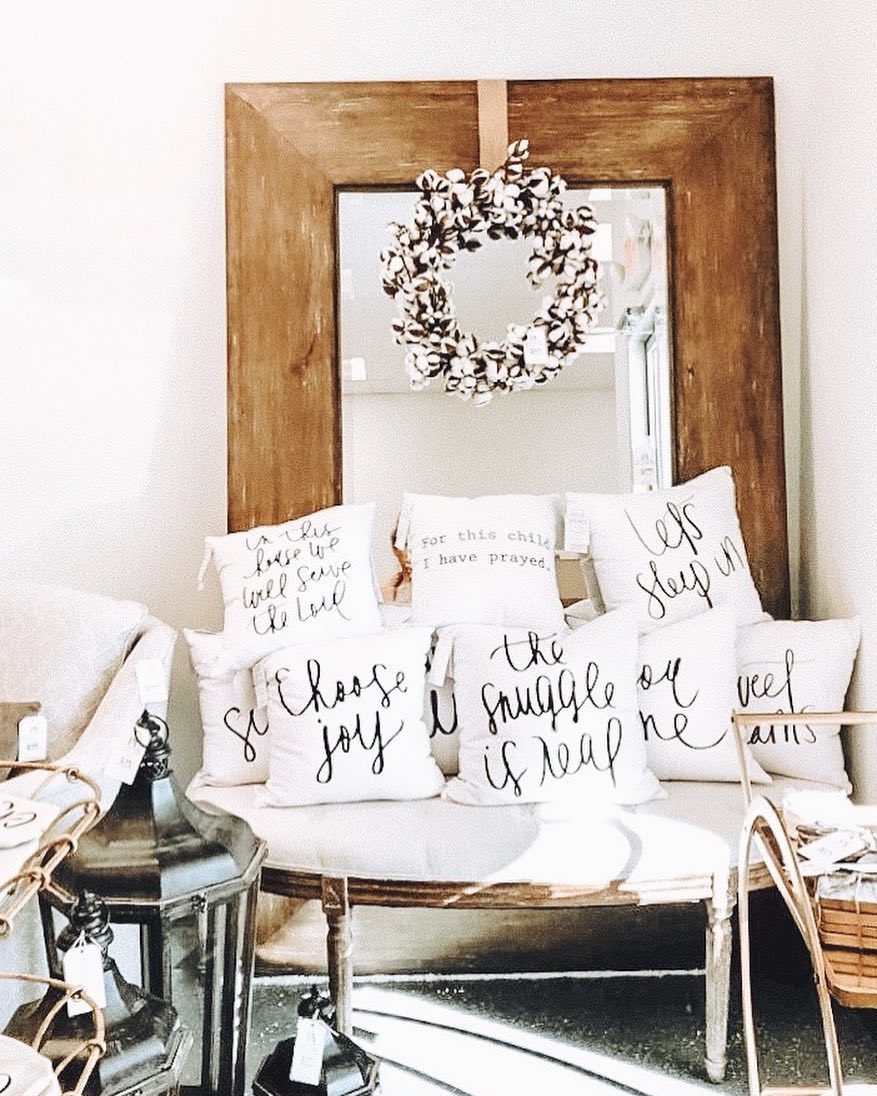 in this
house we
will serve
the Lord
For this child
I have prayed.
let's
sleep in
choose
joy
the
snuggle
is real